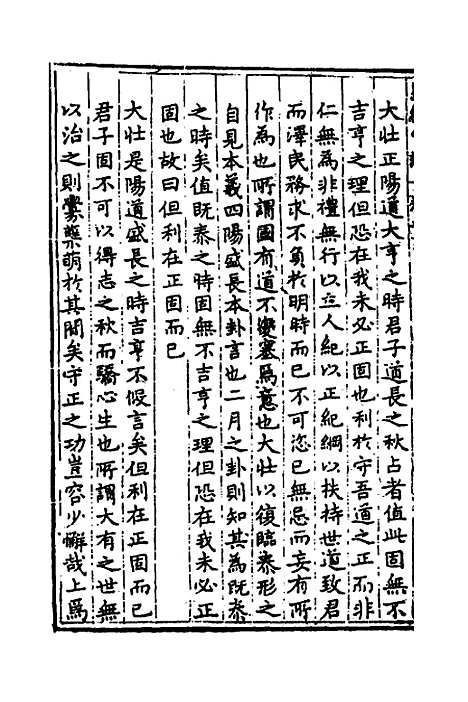 大壮正陽道大亨之時君子道長之秋占者值此固無不
吉亨之理但恐在我未必正固也利於守吾道之正而非
仁無為非禮無行以立人紀以正紀綱以扶持世道致君
而澤民務求不負於明時而已不可恣已無忌而妄有所
作為也所謂國有道不變塞焉意也大壮以復臨泰形之
自見本義四陽盛長本卦言也二月之卦則知其為既泰
之時矣值既泰之時固無不吉亨之理但恐在我未必正
固也故曰但利在正固而已
大壮是陽道盛長之時吉亨不假言矣但利在正固而已
君子固不可以得志之秋而驕心生也所謂大有之世無
以治之則釁蘖萌於其間矣守正之功豈容少懈哉上爲